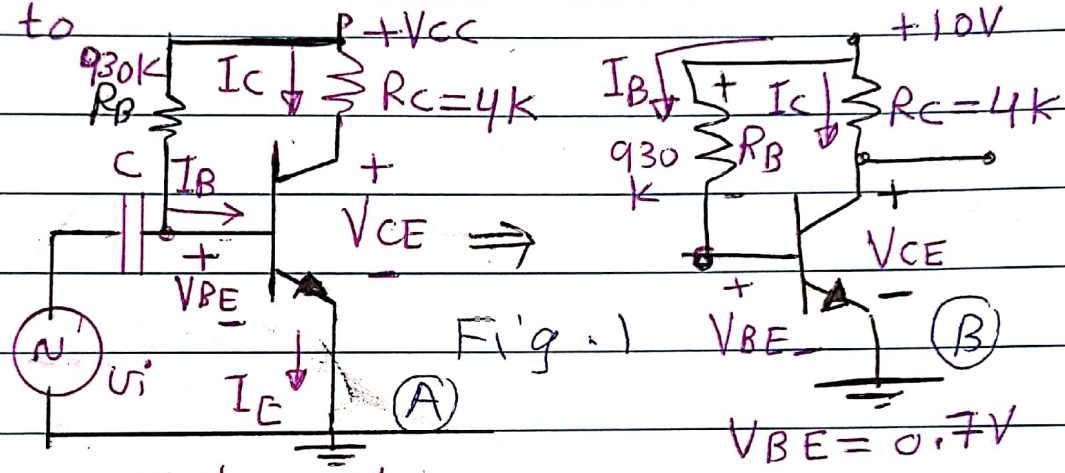 to
P +VCC
930K
RB
IC
RC=4K
C
IB
+
VCE
-
+
VBE
-
Vi
IE
A
⇒
Fig.1
+10V
IB
+
IC
RC=4K
930
K
RB
-
+
VCE
-
+
VBE
-
B
VBE=0.7V